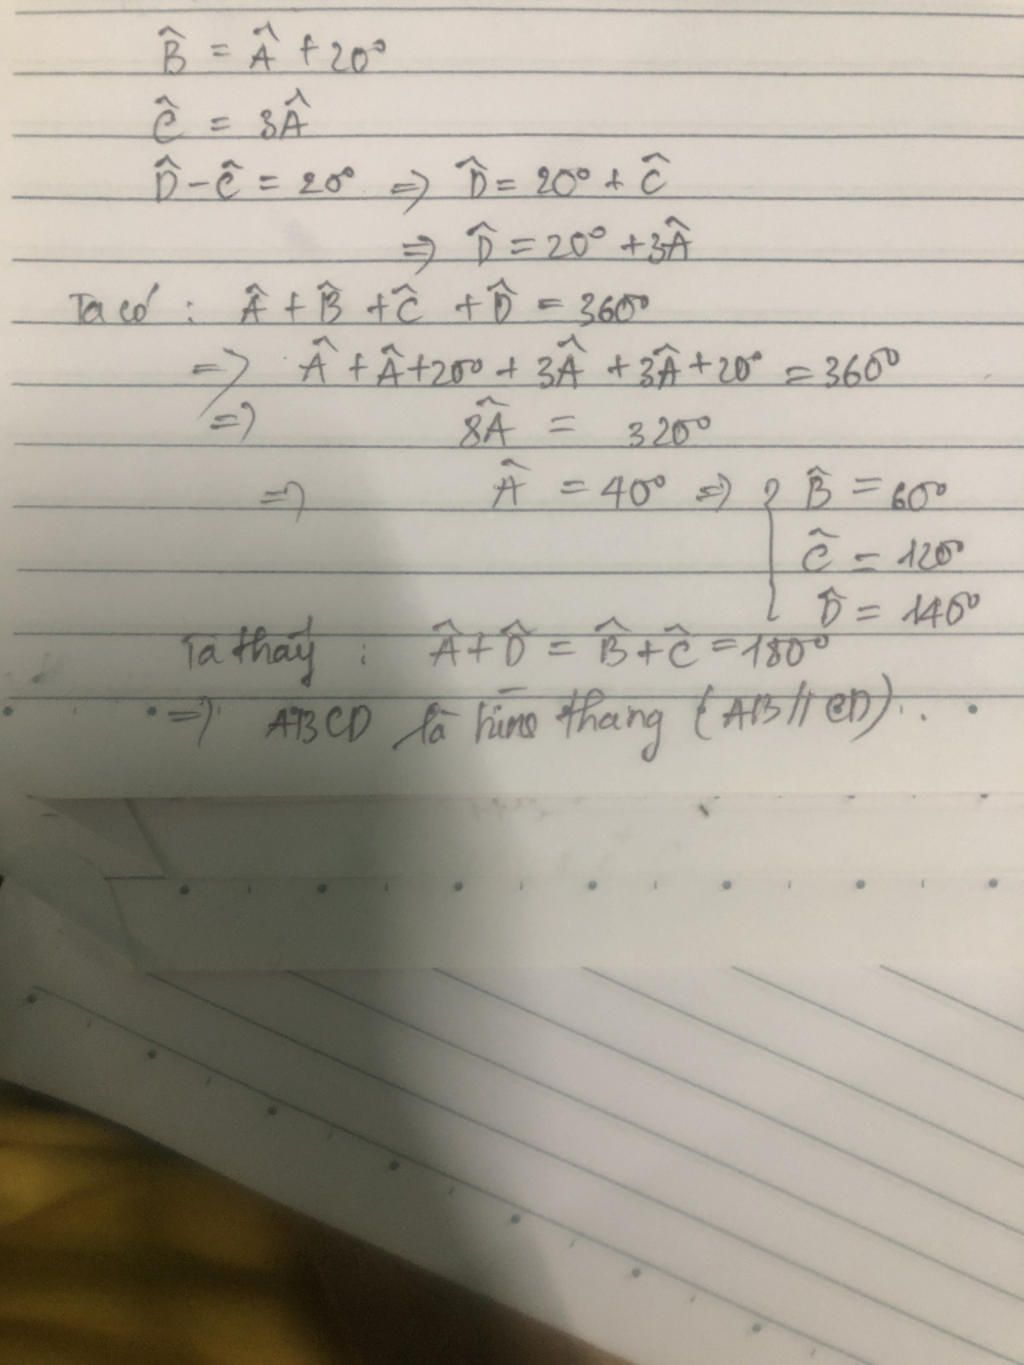 B̂ = Â + 20°
Ĉ = 3Â
D̂ - Ĉ = 20° => D̂ = 20° + Ĉ
=> D̂ = 20° + 3Â
Ta có : Â + B̂ + Ĉ + D̂ = 360°
=> Â + Â + 20° + 3Â + 3Â + 20° = 360°
=> 8Â = 320°
=> Â = 40° => { B̂ = 60°
Ĉ = 120°
D̂ = 140°
Ta thấy : Â + D̂ = B̂ + Ĉ = 180°
=> ABCD là hình thang (AB // CD)